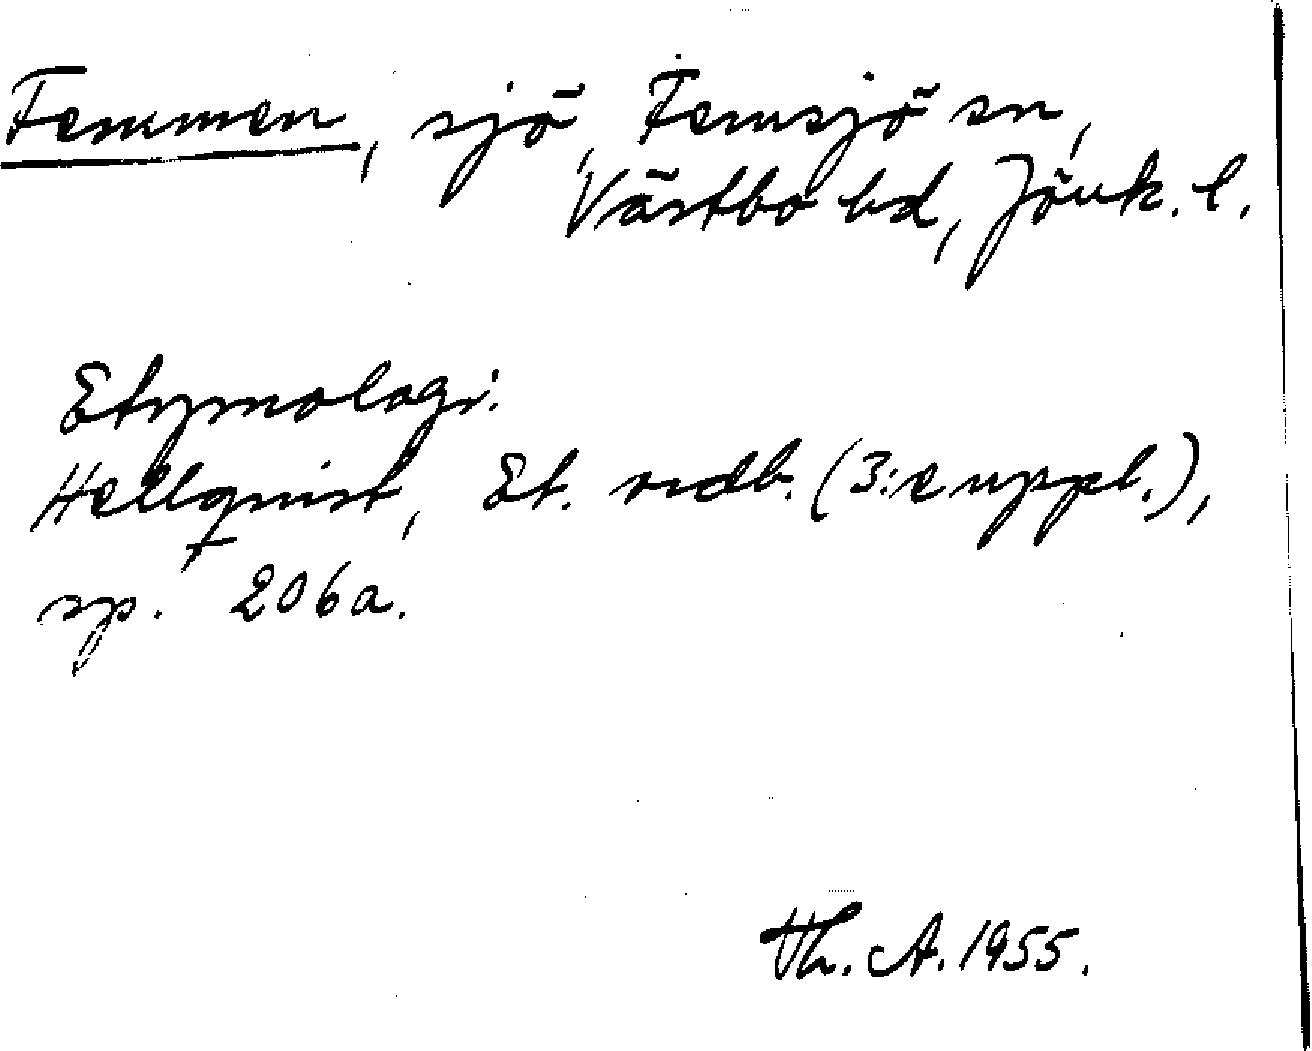 Femmen, sjö, Femsjö sn,
Västbo hd, Jönk. l.
Etymologi:
Hellquist, Et. ordb. (3:e uppl.),
sp. 206a.
Th. A. 1955.